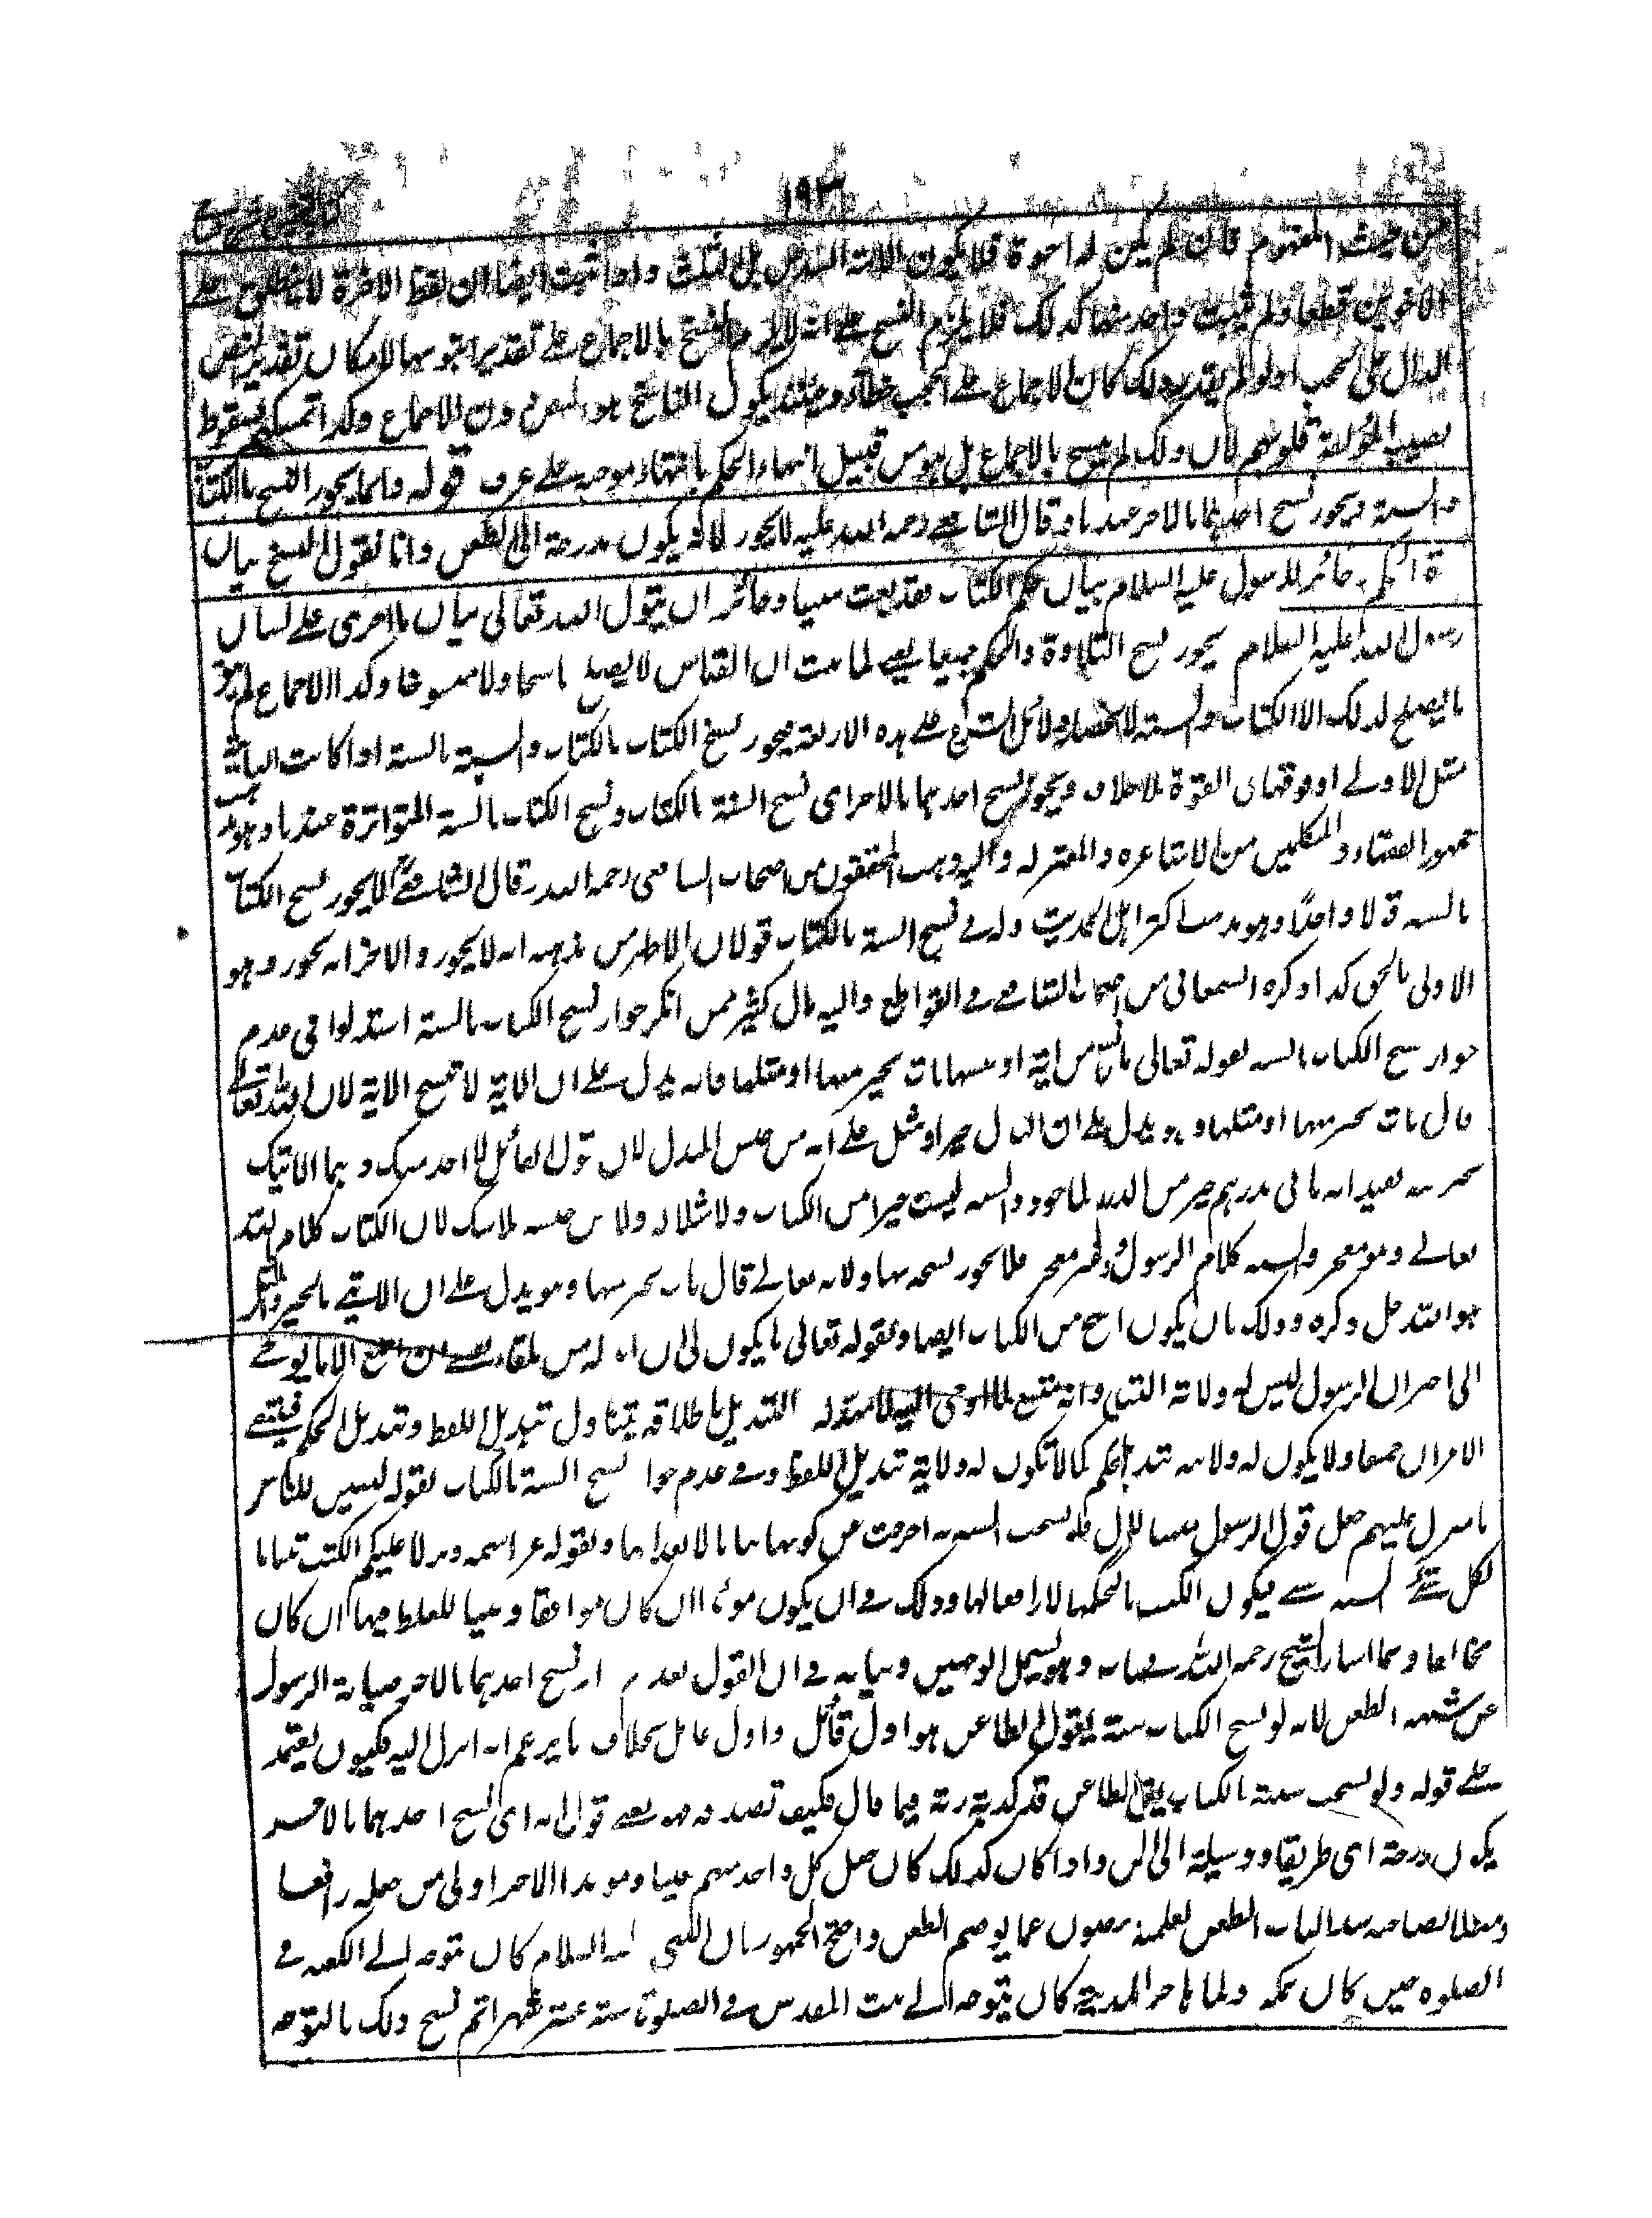 ١٩٣
من حيث المفهوم فان لم يكن له اخوة فلا يكون لامه السدس بل الثلث واذا ثبت ايضا ان لفظ الاخوة لا ينطلق على
الاخوين قطعا ولم يثبت واحد منهما كذلك فلا يلزم النسخ على انه لا يلزم النسخ بالاجماع على تقدير ثبوتهما لامكان تقدير النص
الدال على الحجب اذ لو لم يقدر ذلك كان الاجماع على الحجب خطأ وحينئذ يكون الناسخ هو النص دون الاجماع وكذا تمسكهم بسقوط
نصيب المؤلفة قلوبهم لان ذلك لم ينسخ بالاجماع بل هو من قبيل انتهاء الحكم بانتهاء موجبه على عرف قوله وانما يجوز النسخ بالكتاب
والسنة ويجوز نسخ احدهما بالاخر عندنا وقال الشافعي رحمه الله عليه لا يجوز لانه يكون مدرجة الى الطعن وانا نقول النسخ بيان
مدة الحكم وجائز للرسول عليه السلام بيان حكم الكتاب فقد بعث مبينا وجائز ان يتولى الله تعالى بيان ما اجرى على لسان
رسول الله عليه السلام يجوز نسخ التلاوة والحكم جميعا يعني لما ثبت ان القياس لا يصلح ناسخا ولا منسوخا وكذا الاجماع لم يبق
ما يصلح لذلك الا الكتاب والسنة لانحصار دلائل الشرع على هذه الاربعة فيجوز نسخ الكتاب بالكتاب والسنة بالسنة اذا كانت الثانية
مثل الاولى او فوقها في القوة بلا خلاف ويجوز نسخ احدهما بالاخر اى نسخ السنة بالكتاب ونسخ الكتاب بالسنة المتواترة عندنا وهو مذهب
جمهور الفقهاء والمتكلمين من الاشاعره والمعتزله واليه ذهب المحققون من اصحاب الشافعى رحمه الله وقال الشافعي لا يجوز نسخ الكتاب
بالسنه قولا واحدا وهو مذهب اكثر اهل الحديث وله في نسخ السنة بالكتاب قولان الاظهر من مذهبه انه لا يجوز والاخر انه يجوز وهو
الاولى بالحق كذا ذكره السمعاني من اصحاب الشافعي في القواطع واليه مال كثير ممن انكر جواز نسخ الكتاب بالسنة استدلوا في عدم
جواز نسخ الكتاب بالسنه بقوله تعالى ما ننسخ من آية او ننسها نات بخير منها او مثلها فانه يدل على ان الاية لا تنسخ الا باية لان الله تعالى
قال نات بخير منها او مثلها وهو يدل على ان البدل خير او مثل على انه من جنس المبدل لان قول القائل لا اخذ منك درهما الا اتيتك
بخير منه يفيد انه ياتى بدرهم خير من الدرهم الماخوذ والسنه ليست خيرا من الكتاب ولا مثلا له ولا من جنسه بلا شك لان الكتاب كلام الله
تعالى وهو معجز والسنه كلام الرسول وغير معجز فلا يجوز نسخه بها ولانه تعالى قال نات بخير منها وهو يدل على ان الاتي بالخير والمثل
هو الله جل ذكره وذلك بان يكون الناسخ من الكتاب ايضا وبقوله تعالى ما يكون لي ان ابدله من تلقاء نفسي ان اتبع الا ما يوحى
الى اخبر ان الرسول ليس له ولاية التبديل وانه متبع لما اوحى اليه لا مبدل له والتبديل باطلاقه يتناول تبديل اللفظ وتبديل الحكم فينتفي
الامران جميعا ولا يكون له ولاية تبديل الحكم كما لا تكون له ولاية تبديل اللفظ وفي عدم جواز نسخ السنة بالكتاب بقوله لتبين للناس
ما نزل عليهم جعل قول الرسول بيانا للمنزل فلو نسخت السنة به خرجت عن كونها بيانا لانعدامها وبقوله عز اسمه ونزلنا عليكم الكتب تبيانا
لكل شيء والسنه شيء فيكون الكتاب تبيانا لحكمها لا رافعا لها وذلك في ان يكون مؤيدا ان كان موافقا ومبينا للغلط فيها ان كان
مخالفا ومما اشار الشيخ رحمه الله في الكتاب وهو يشمل الوجهين وبيانه في ان القول بعدم جواز نسخ احدهما بالاخر صيانة الرسول
عن شبهه الطعن لانه لو نسخ الكتاب بسنته يقول الطاعن هو اول قائل واول عامل بخلاف ما يزعم انه انزل اليه فكيف يعتمد
على قوله ولو نسخت سنته بالكتاب يقول الطاعن قد كذبه ربه فيما قال فكيف نصدقه وهو معنى قوله انه اى نسخ احدهما بالاخر
يكون مدرجة اى طريقا ووسيلة الى الطعن واذا كان كذلك كان جعل كل واحد منهما مبينا ومؤيدا للاخر اولى من جعله رافعا
ومبطلا لصاحبه سدا لباب الطعن لعلمنا انه مصون عما يوهم الطعن واحتج الجمهور بان النبي عليه السلام كان يتوجه الى الكعبه في
الصلوه حين كان بمكه ولما هاجر الى المدينة كان يتوجه الى بيت المقدس في الصلوة ستة عشر شهرا ثم نسخ ذلك بالتوجه